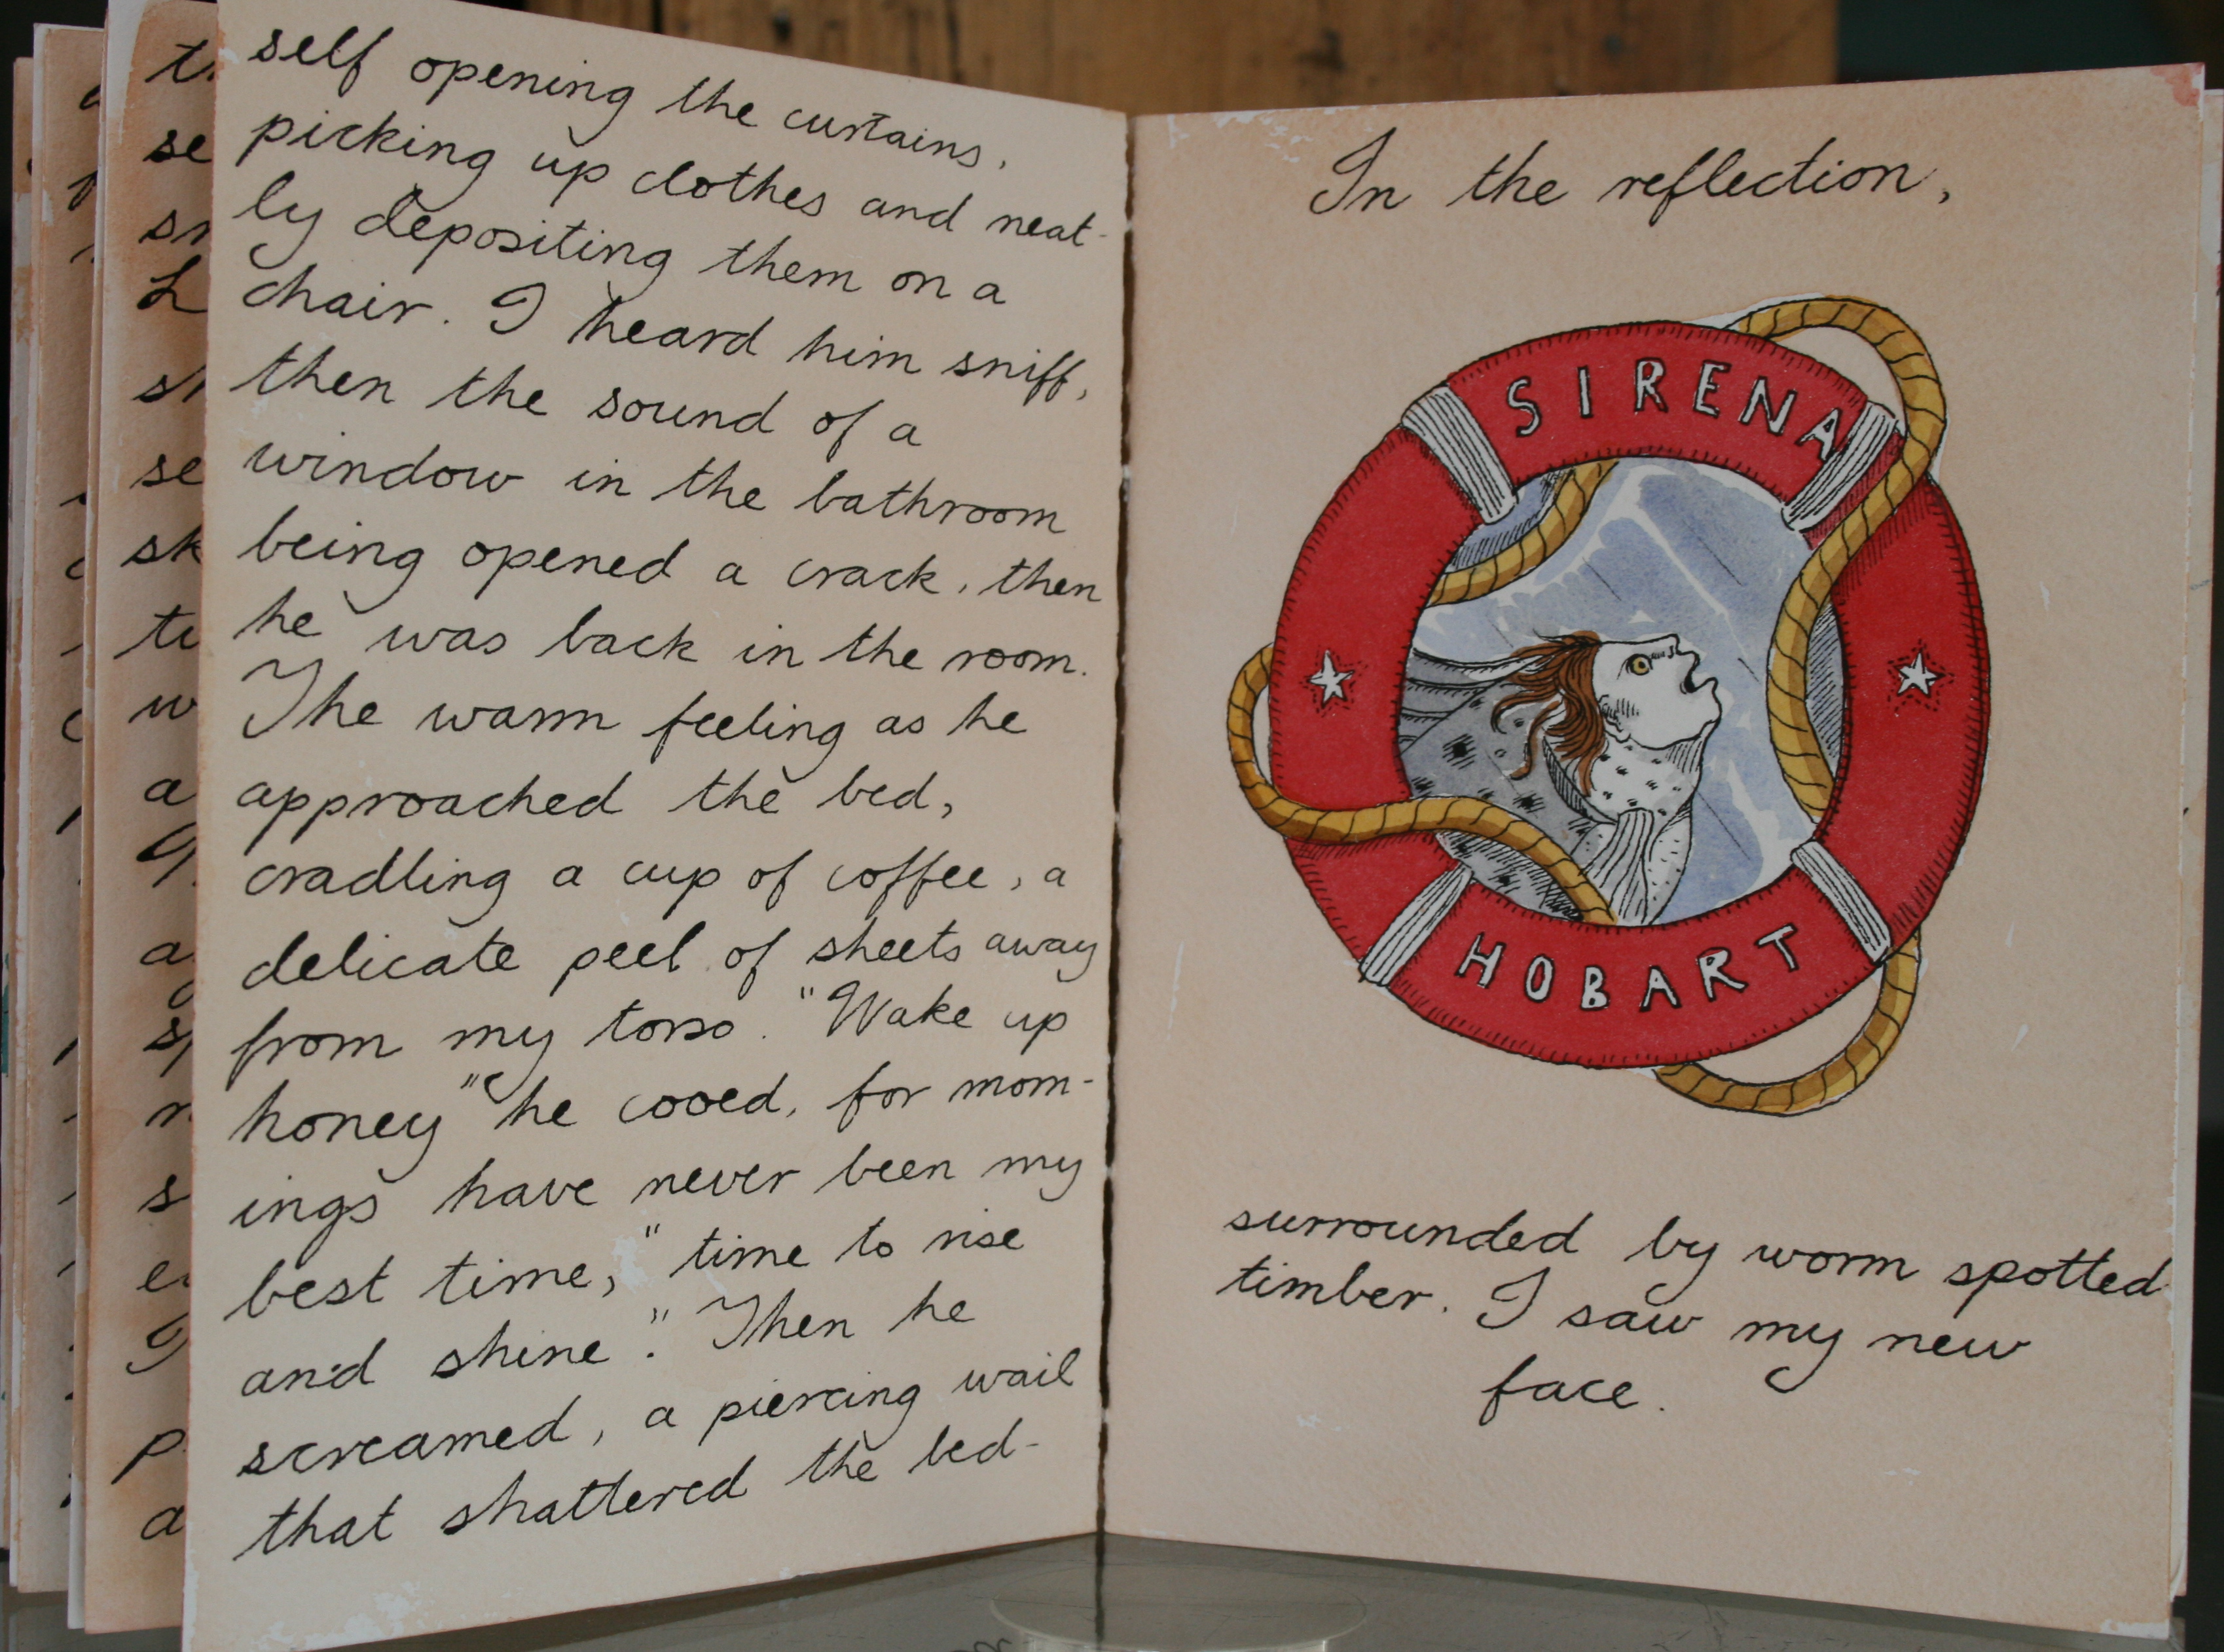 self opening the curtains,
picking up clothes and neat-
ly depositing them on a
chair. I heard him sniff,
then the sound of a
window in the bathroom
being opened a crack, then
he was back in the room.
The warm feeling as he
approached the bed,
cradling a cup of coffee, a
delicate peel of sheets away
from my torso. "Wake up
honey" he cooed, for morn-
ings have never been my
best time, "time to rise
and shine". Then he
screamed, a piercing wail
that shattered the bed-
In the reflection,
SIRENA
HOBART
surrounded by worm spotted
timber. I saw my new
face.